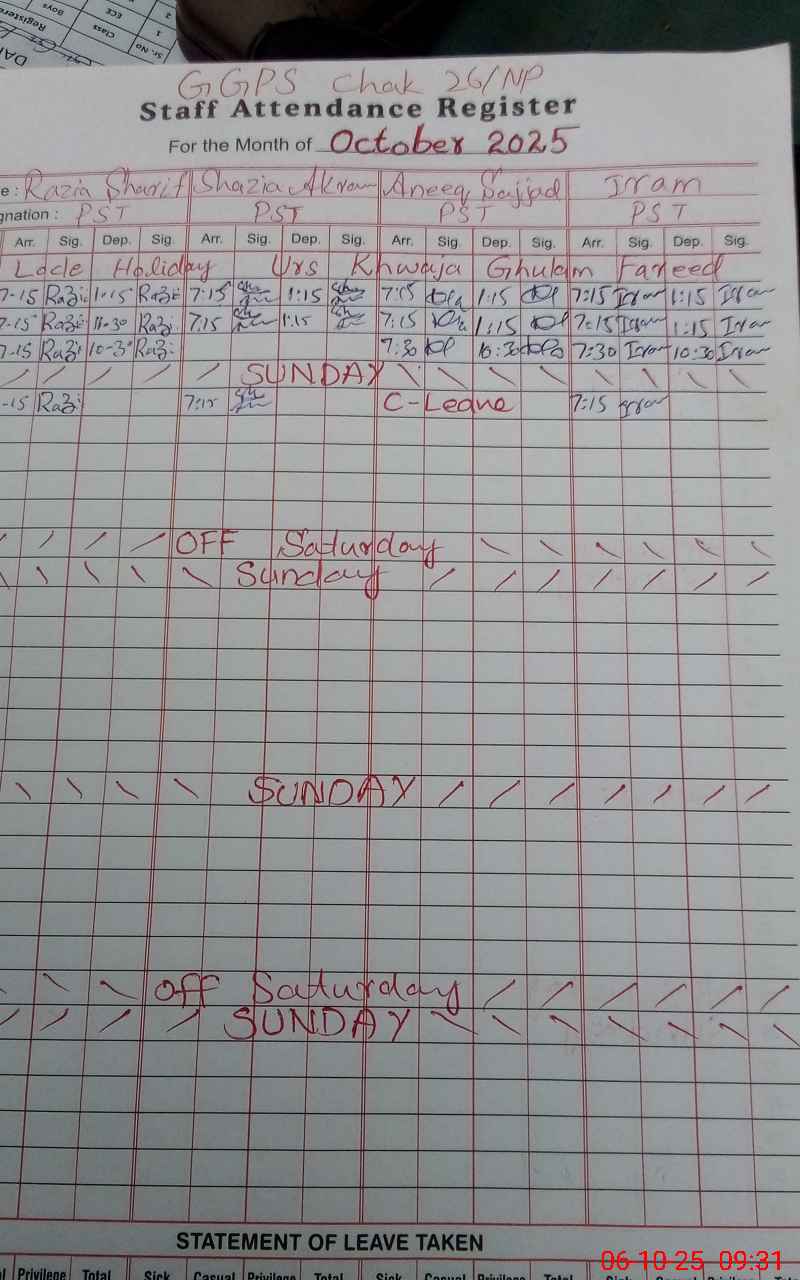 DAI
Sr. No Class Registere Boys
1 ECE
2
GGPS Chak 26/NP
Staff Attendance Register
For the Month of October 2025
e : Razia Sharif Shazia Akram Aneeq Sajjad Irram
gnation : PST PST PST PST
Arr. Sig. Dep. Sig. Arr. Sig. Dep. Sig. Arr. Sig. Dep. Sig. Arr. Sig. Dep. Sig.
Locle Holiday Urs Khwaja Ghulam Fareed
7-15 Razi 1-15 Razi 7:15 1:15 7:15 1:15 7:15 Irram 1:15 Irram
7-15 Razi 11-30 Razi 7:15 1:15 7:15 1:15 7:15 Irram 1:15 Irram
7-15 Razi 10-30 Razi 7:30 10:30 7:30 Irram 10:30 Irram
SUNDAY
-15 Razi 7:15 C-Leave 7:15 Irram
OFF Saturday
Sunday
SUNDAY
OFF Saturday
SUNDAY
STATEMENT OF LEAVE TAKEN
l Privilege Total Sick Casual Privilege Total Sick Casual Privilege Total
06-10-25 09:31